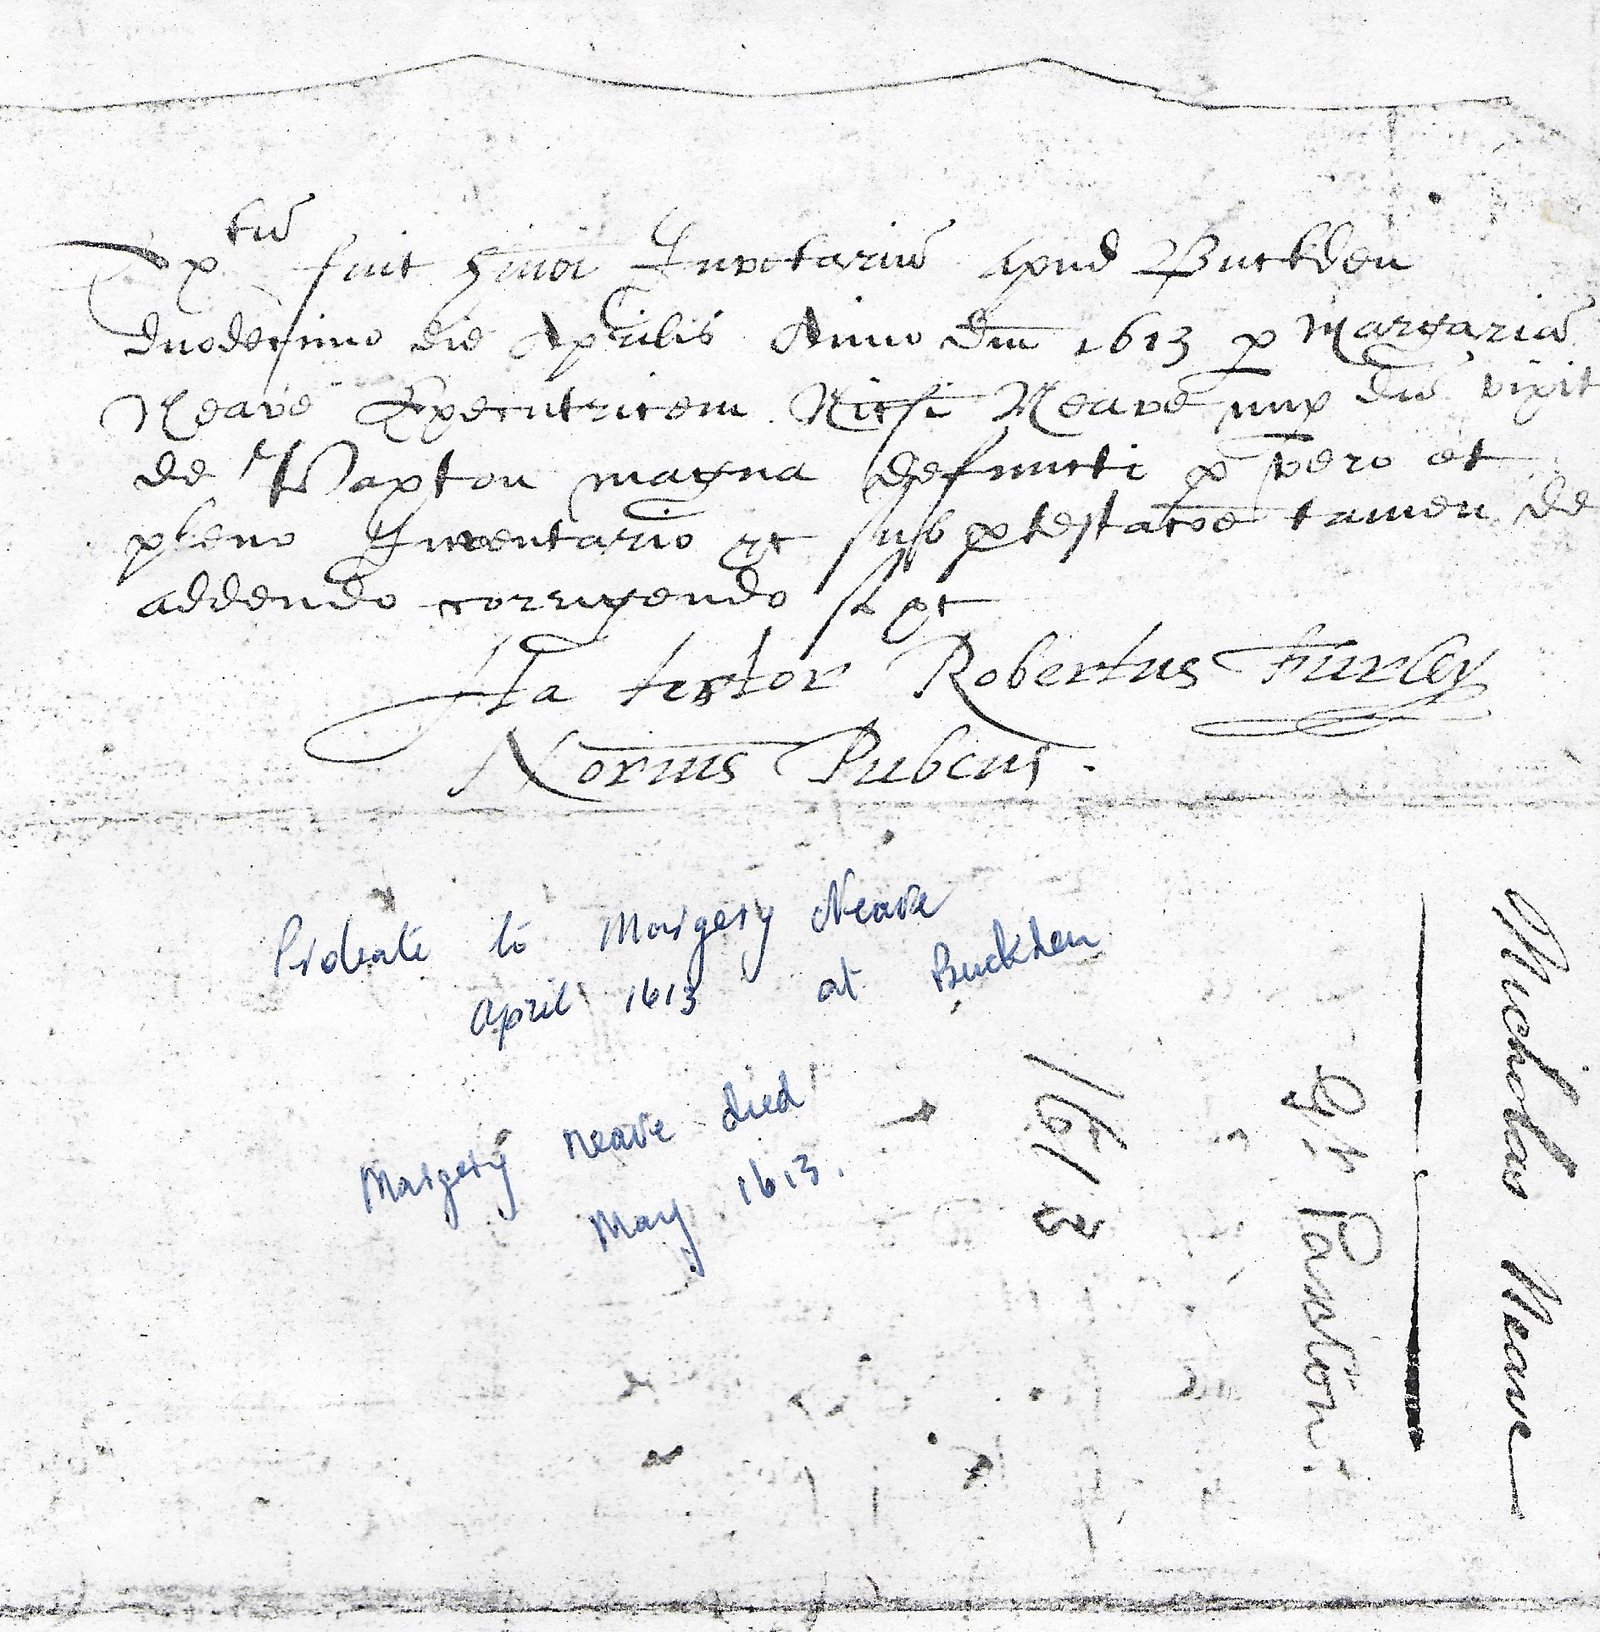 Ext̃u fuit h̃moi Inv̄ctariũ apud Buckden
duodecimo die Aprilis Anno Dñi 1613 p Margariã
Neave Executricem Nicħi Neave nup dũ vixit
de Paxton magna defuncti p vero et
pleno Inventario &c sub ptestac̃oe tamen de
addendo corrigendo si &c
Ita testor Robertus Furley
Nõrius Pubcus.
Probate to Margery Neave
April 1613 at Buckden
Margery Neave died
May 1613.
Nicholas Neave
Paxton:
1613